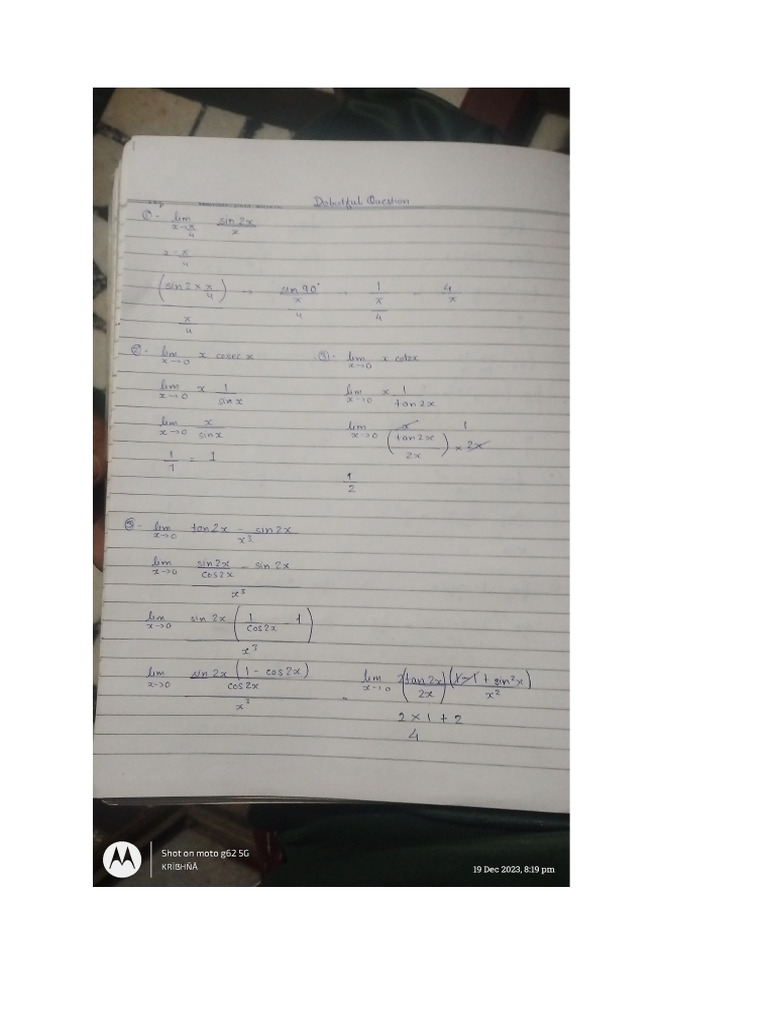 Dobutful Question
①- lim x→π/4 sin2x/x
x=π/4
(sin2×π/4)/(π/4) → sin90°/(π/4) → 1/(π/4) - 4/π
②- lim x→0 x cosec x
lim x→0 x 1/sinx
lim x→0 x/sinx
1/1 = 1
③- lim x→0 x cot2x
lim x→0 x 1/tan2x
lim x→0 x/(tan2x/2x) × 2x 1
1/2
lim x→0 tan2x - sin2x/x³
lim x→0 sin2x/cos2x - sin2x/x³
lim x→0 sin 2x (1/cos2x - 1)/x³
lim x→0 sin2x (1 - cos2x)/cos2x/x³
lim x→0 2(tan2x/2x) (1-1 + sin²x)/x²
2 × 1 + 2
4
Shot on moto g62 5G
KRÏBHÑÅ
19 Dec 2023, 8:19 pm